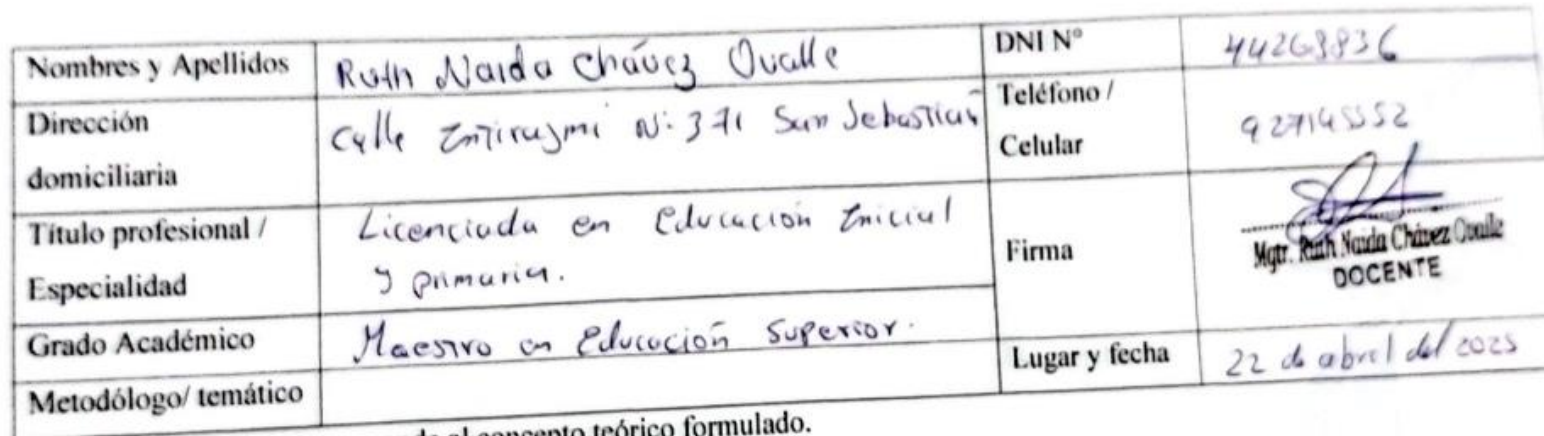 Nombres y Apellidos Ruth Naida Chávez Ovalle DNI N° 44268836
Dirección domiciliaria Calle Intiraymi N: 371 San Sebastian Teléfono / Celular 927145552
Título profesional / Especialidad Licenciada en Educación Inicial y primaria. Firma
Mgtr. Ruth Naida Chávez Ovalle
DOCENTE
Grado Académico Maestro en Educación Superior.
Lugar y fecha 22 de abril del 2025
Metodólogo/ temático
al concepto teórico formulado.